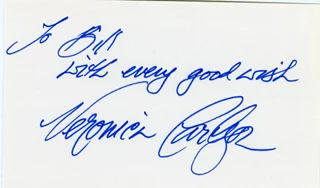 To Bill
with every good wish
Veronica Carlson